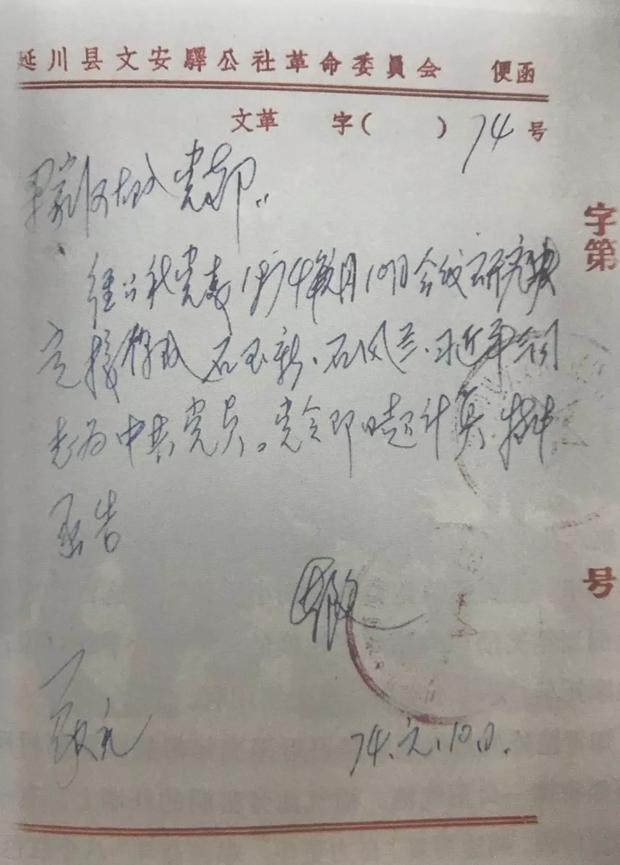 延川县文安驛公社革命委員会 便函
文革 字( ) 74 号
梁家河大队党部:
经公社党委1974年元月10日会议研究决
定接收 石玉新、石风兰、习近平 同
志为中共党员。党令即日起计算 特此
函告
74.元.10日.
字第
号